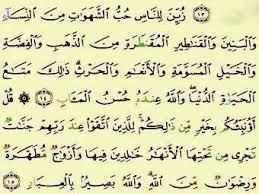 ١٣ زُيِّنَ لِلنَّاسِ حُبُّ الشَّهَوَاتِ مِنَ النِّسَآءِ
وَالْبَنِينَ وَالْقَنَاطِيرِ الْمُقَنطَرَةِ مِنَ الذَّهَبِ وَالْفِضَّةِ
وَالْخَيْلِ الْمُسَوَّمَةِ وَالْأَنْعَامِ وَالْحَرْثِ ذَٰلِكَ مَتَاعُ
الْحَيَوٰةِ الدُّنْيَا وَاللَّهُ عِندَهُ حُسْنُ الْمَـَٔابِ ١٤ قُلْ
أَؤُنَبِّئُكُم بِخَيْرٍ مِّن ذَٰلِكُمْ لِلَّذِينَ اتَّقَوْا عِندَ رَبِّهِمْ جَنَّـٰتٌ
تَجْرِى مِن تَحْتِهَا الْأَنْهَـٰرُ خَـٰلِدِينَ فِيهَا وَأَزْوَٰجٌ مُّطَهَّرَةٌ
وَرِضْوَٰنٌ مِّنَ اللَّهِ وَاللَّهُ بَصِيرٌ بِالْعِبَادِ ١٥